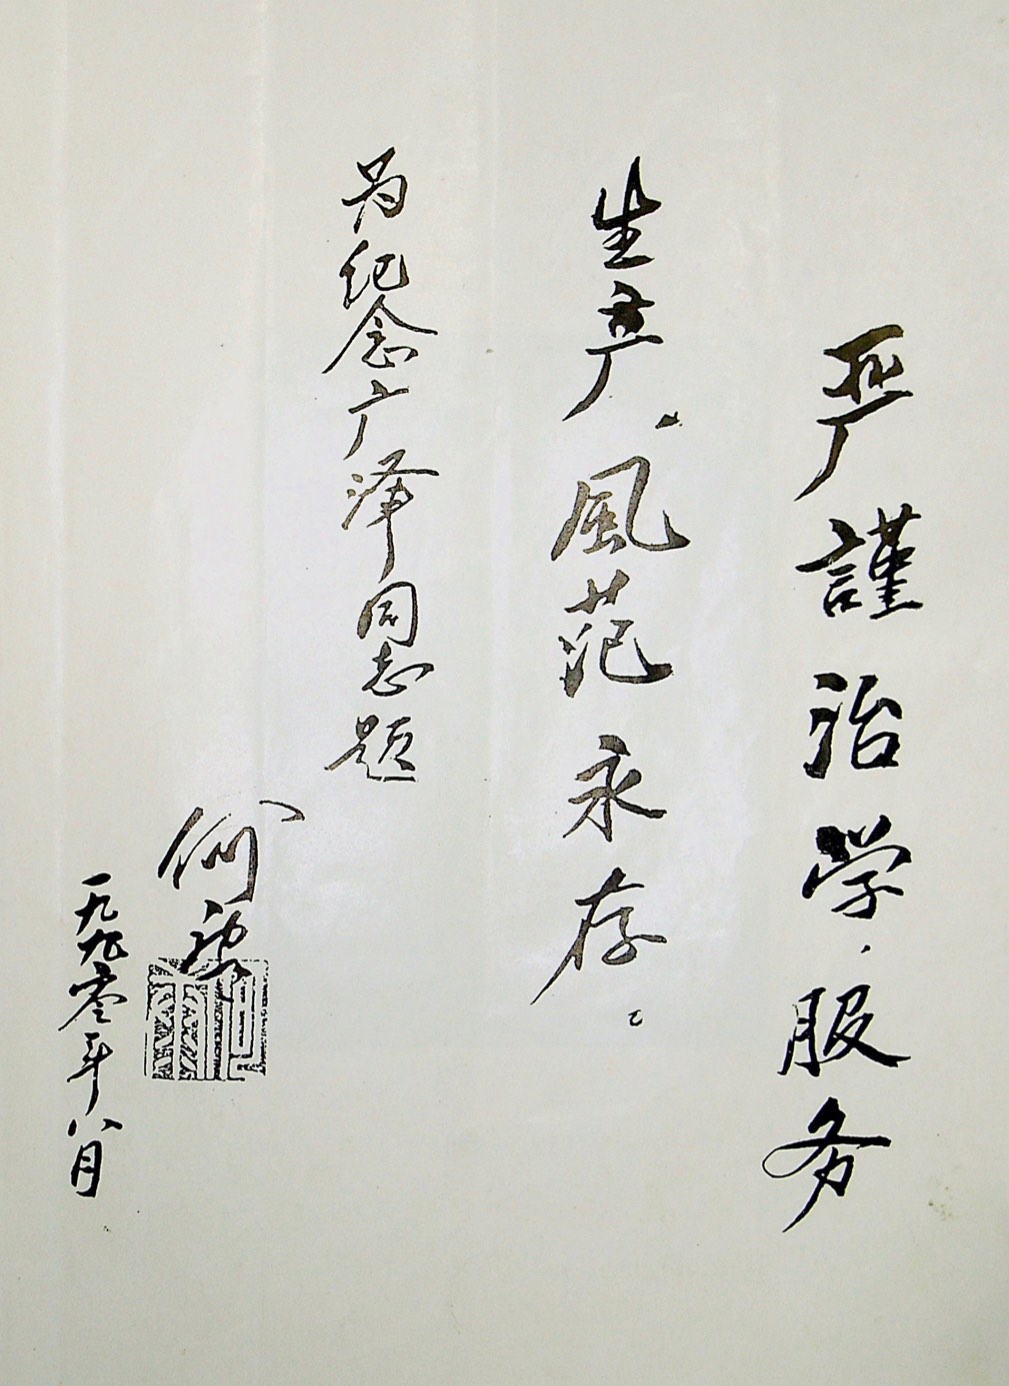 严謹治学，服务
生产，風范永存。
为纪念广泽同志题
何康
一九九零年八月